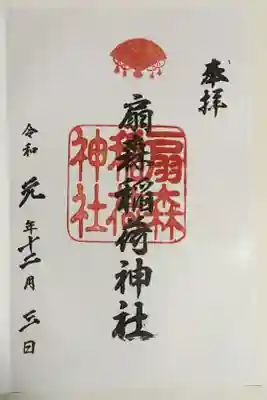 奉拝
扇森稲荷神社
扇森稲荷神社
令和元年十二月三日